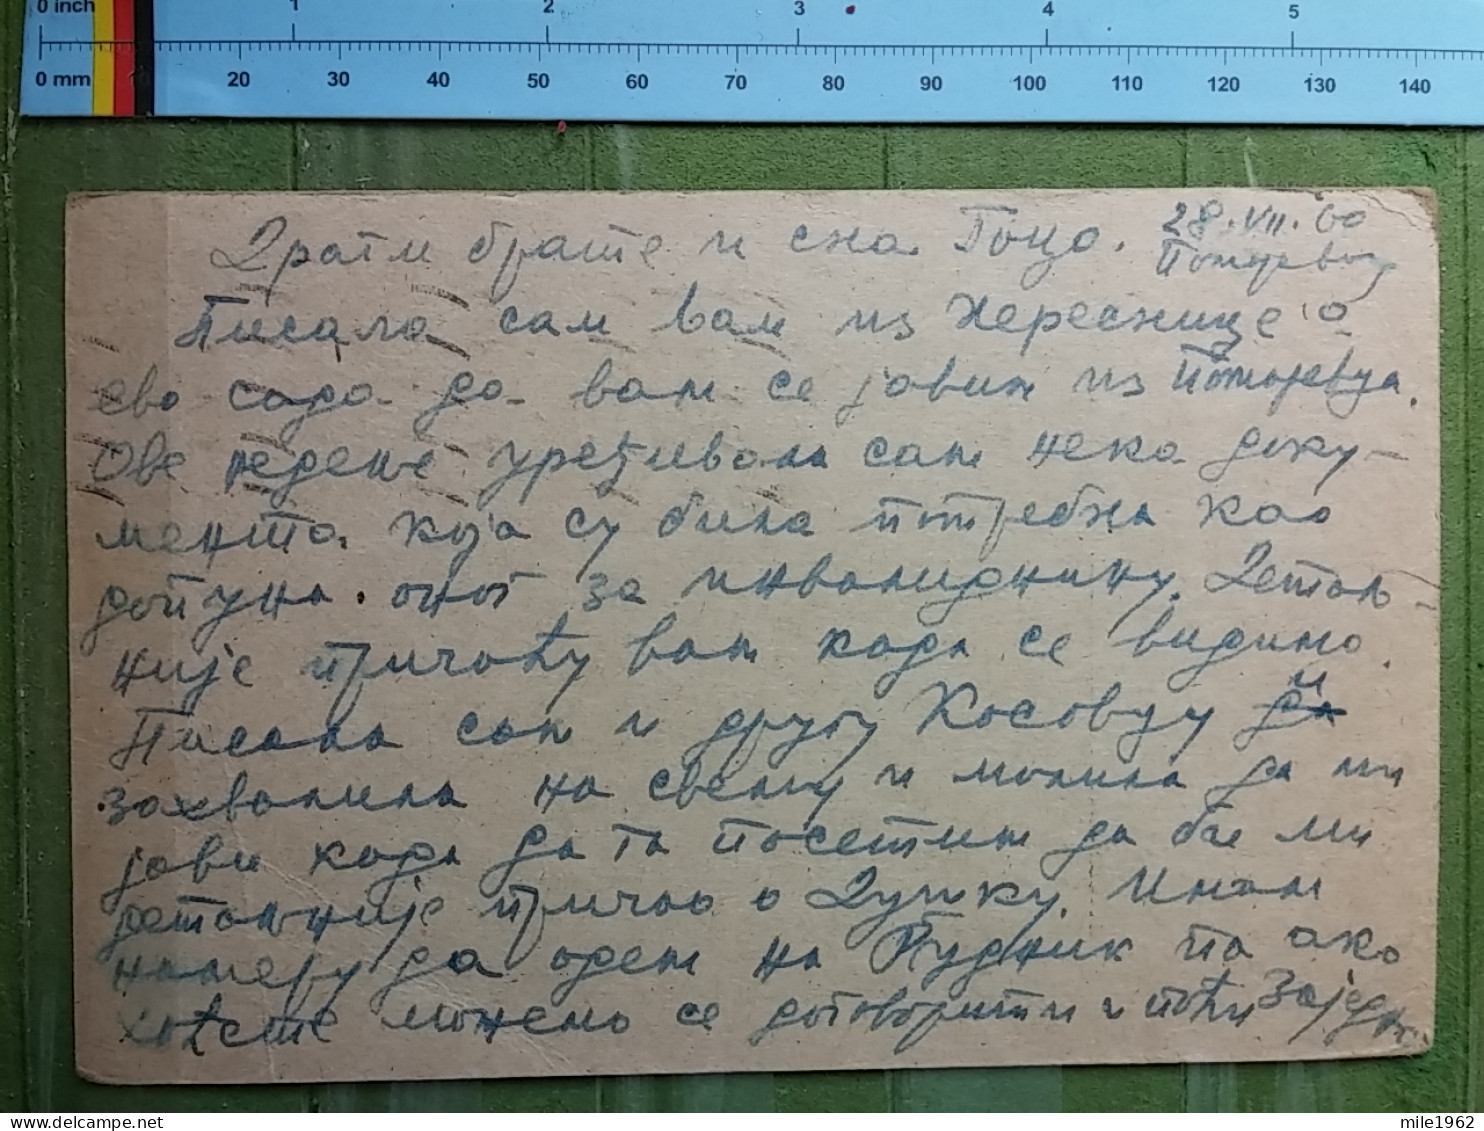 0 inch 1 2 3 4 5
0 mm 20 30 40 50 60 70 80 90 100 110 120 130 140
28.VII.60
Драги брате и сна Гоцо.
Писала сам вам из Нереснице а
ево сада да вам се јавим из Пожаревца.
Ове недеље уређивала сам нека доку-
мента која су била потребна као
допуна оног за инвалиднину. Детаљ-
није причаћу вам када се видимо.
Писала сам и другу Косовцу и
захвалила на свему и молила да ми
јави када да га посетим да би ми
детаљније причао о Душку. Имам
намеру да одем на Рудник па ако
хоћете можемо се договорити и поћи заједно.
mile1962